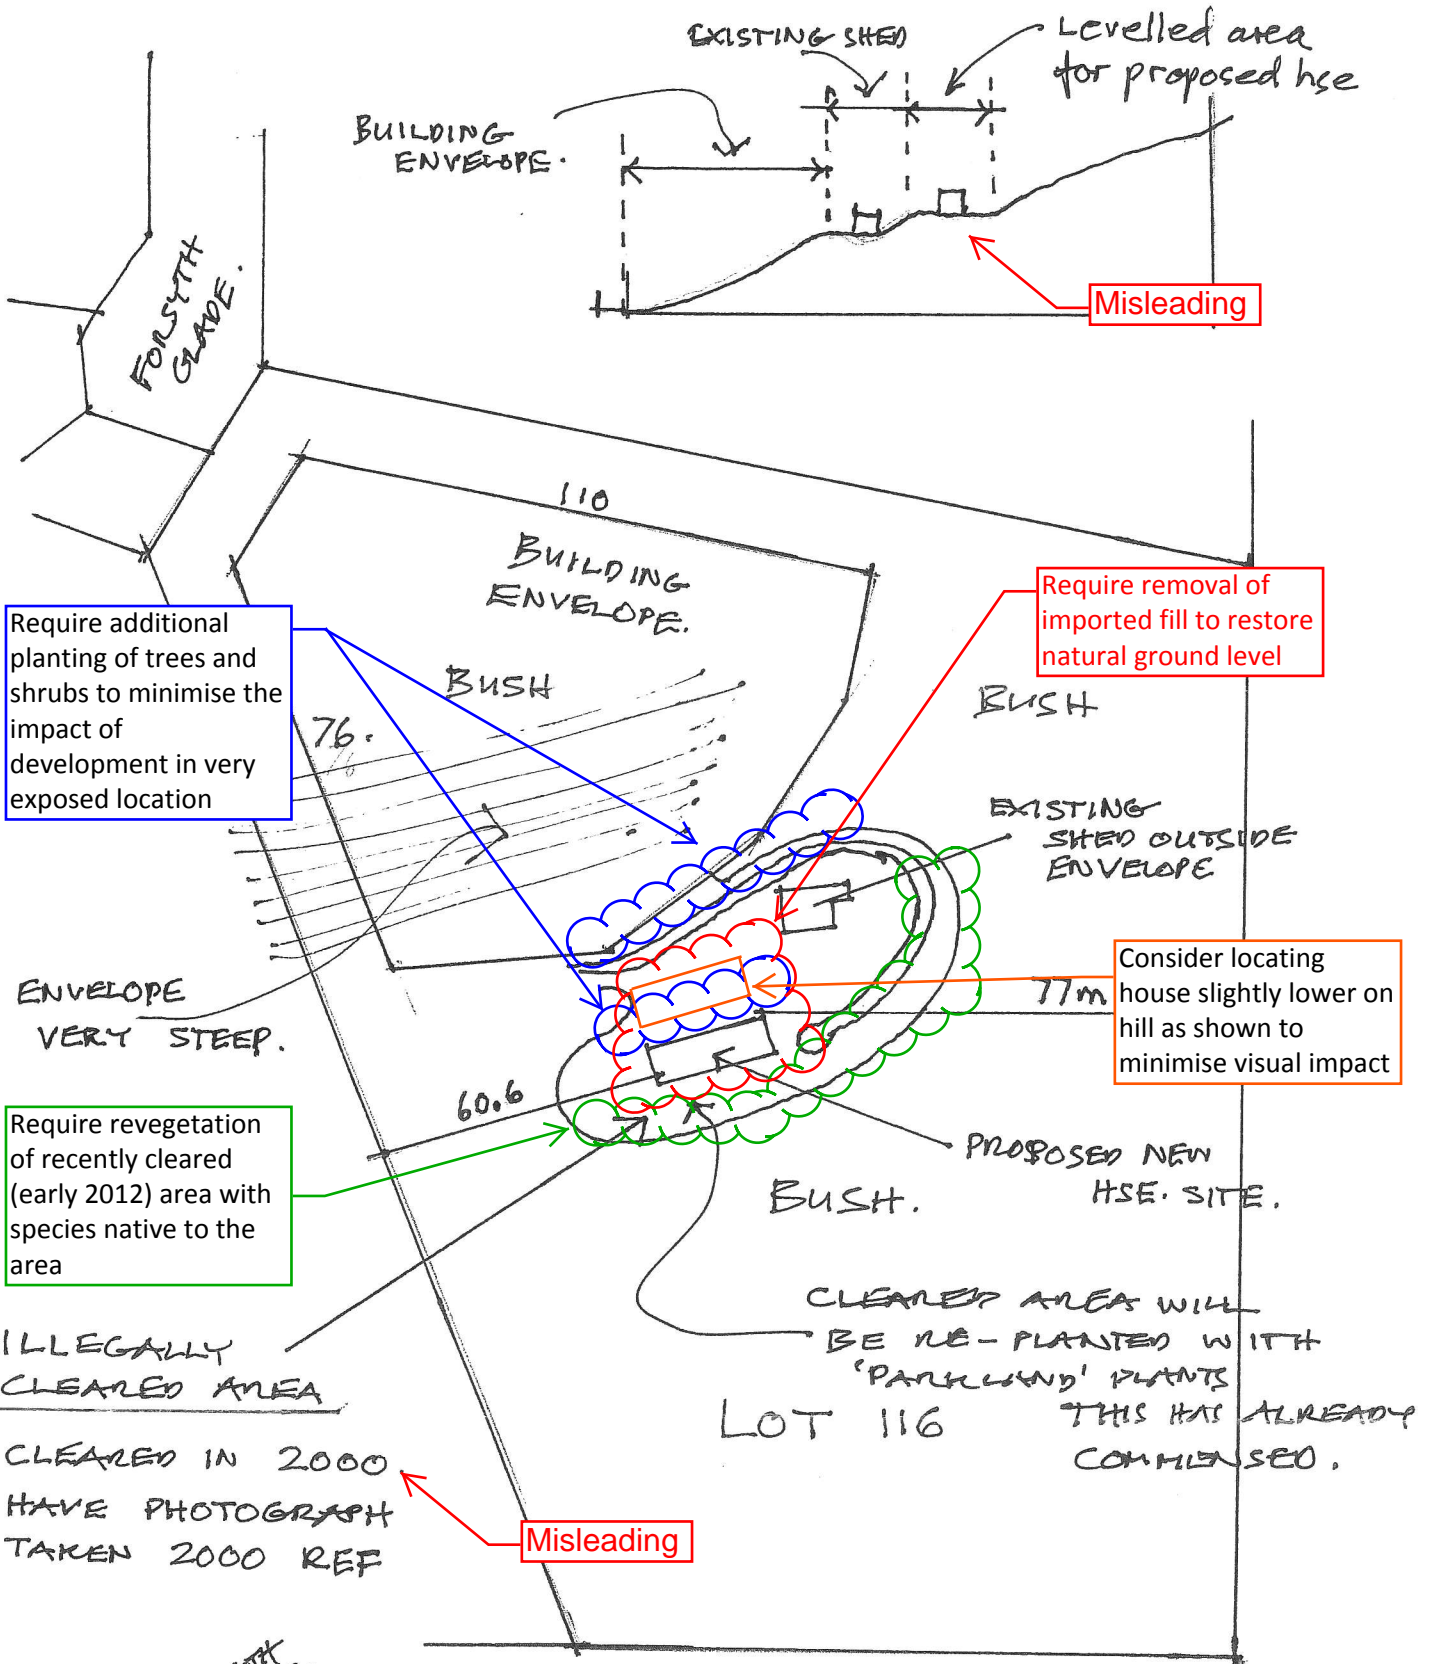 EXISTING SHED
Levelled area
for proposed hse
BUILDING
ENVELOPE.
Misleading
FORSYTH
GLADE.
110
BUILDING
ENVELOPE.
Require removal of
imported fill to restore
natural ground level
Require additional
planting of trees and
shrubs to minimise the
impact of
development in very
exposed location
BUSH
BUSH
76.
EXISTING
SHED OUTSIDE
ENVELOPE
Consider locating
house slightly lower on
hill as shown to
minimise visual impact
77m
ENVELOPE
VERY STEEP.
60.6
Require revegetation
of recently cleared
(early 2012) area with
species native to the
area
PROPOSED NEW
HSE. SITE.
BUSH.
CLEARED AREA WILL
BE RE-PLANTED WITH
'PARKLAND' PLANTS
THIS HAS ALREADY
COMMENSED.
LOT 116
ILLEGALLY
CLEARED AREA
CLEARED IN 2000
HAVE PHOTOGRAPH
TAKEN 2000 REF
Misleading